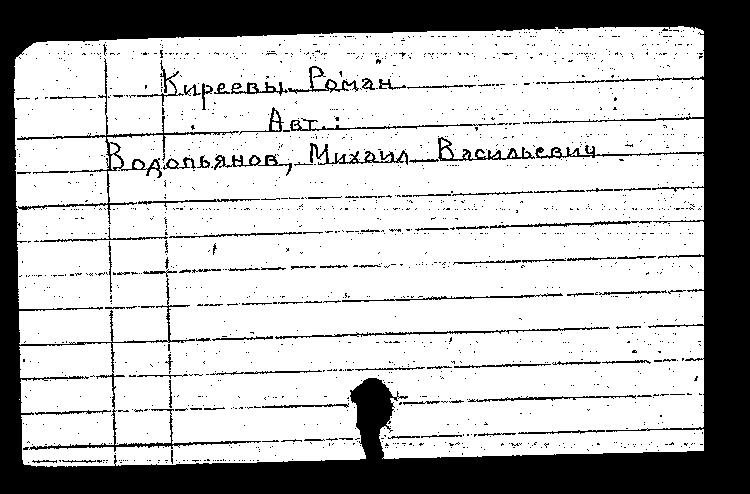 Киреевы. Роман.
Авт.:
Водопьянов, Михаил Васильевич